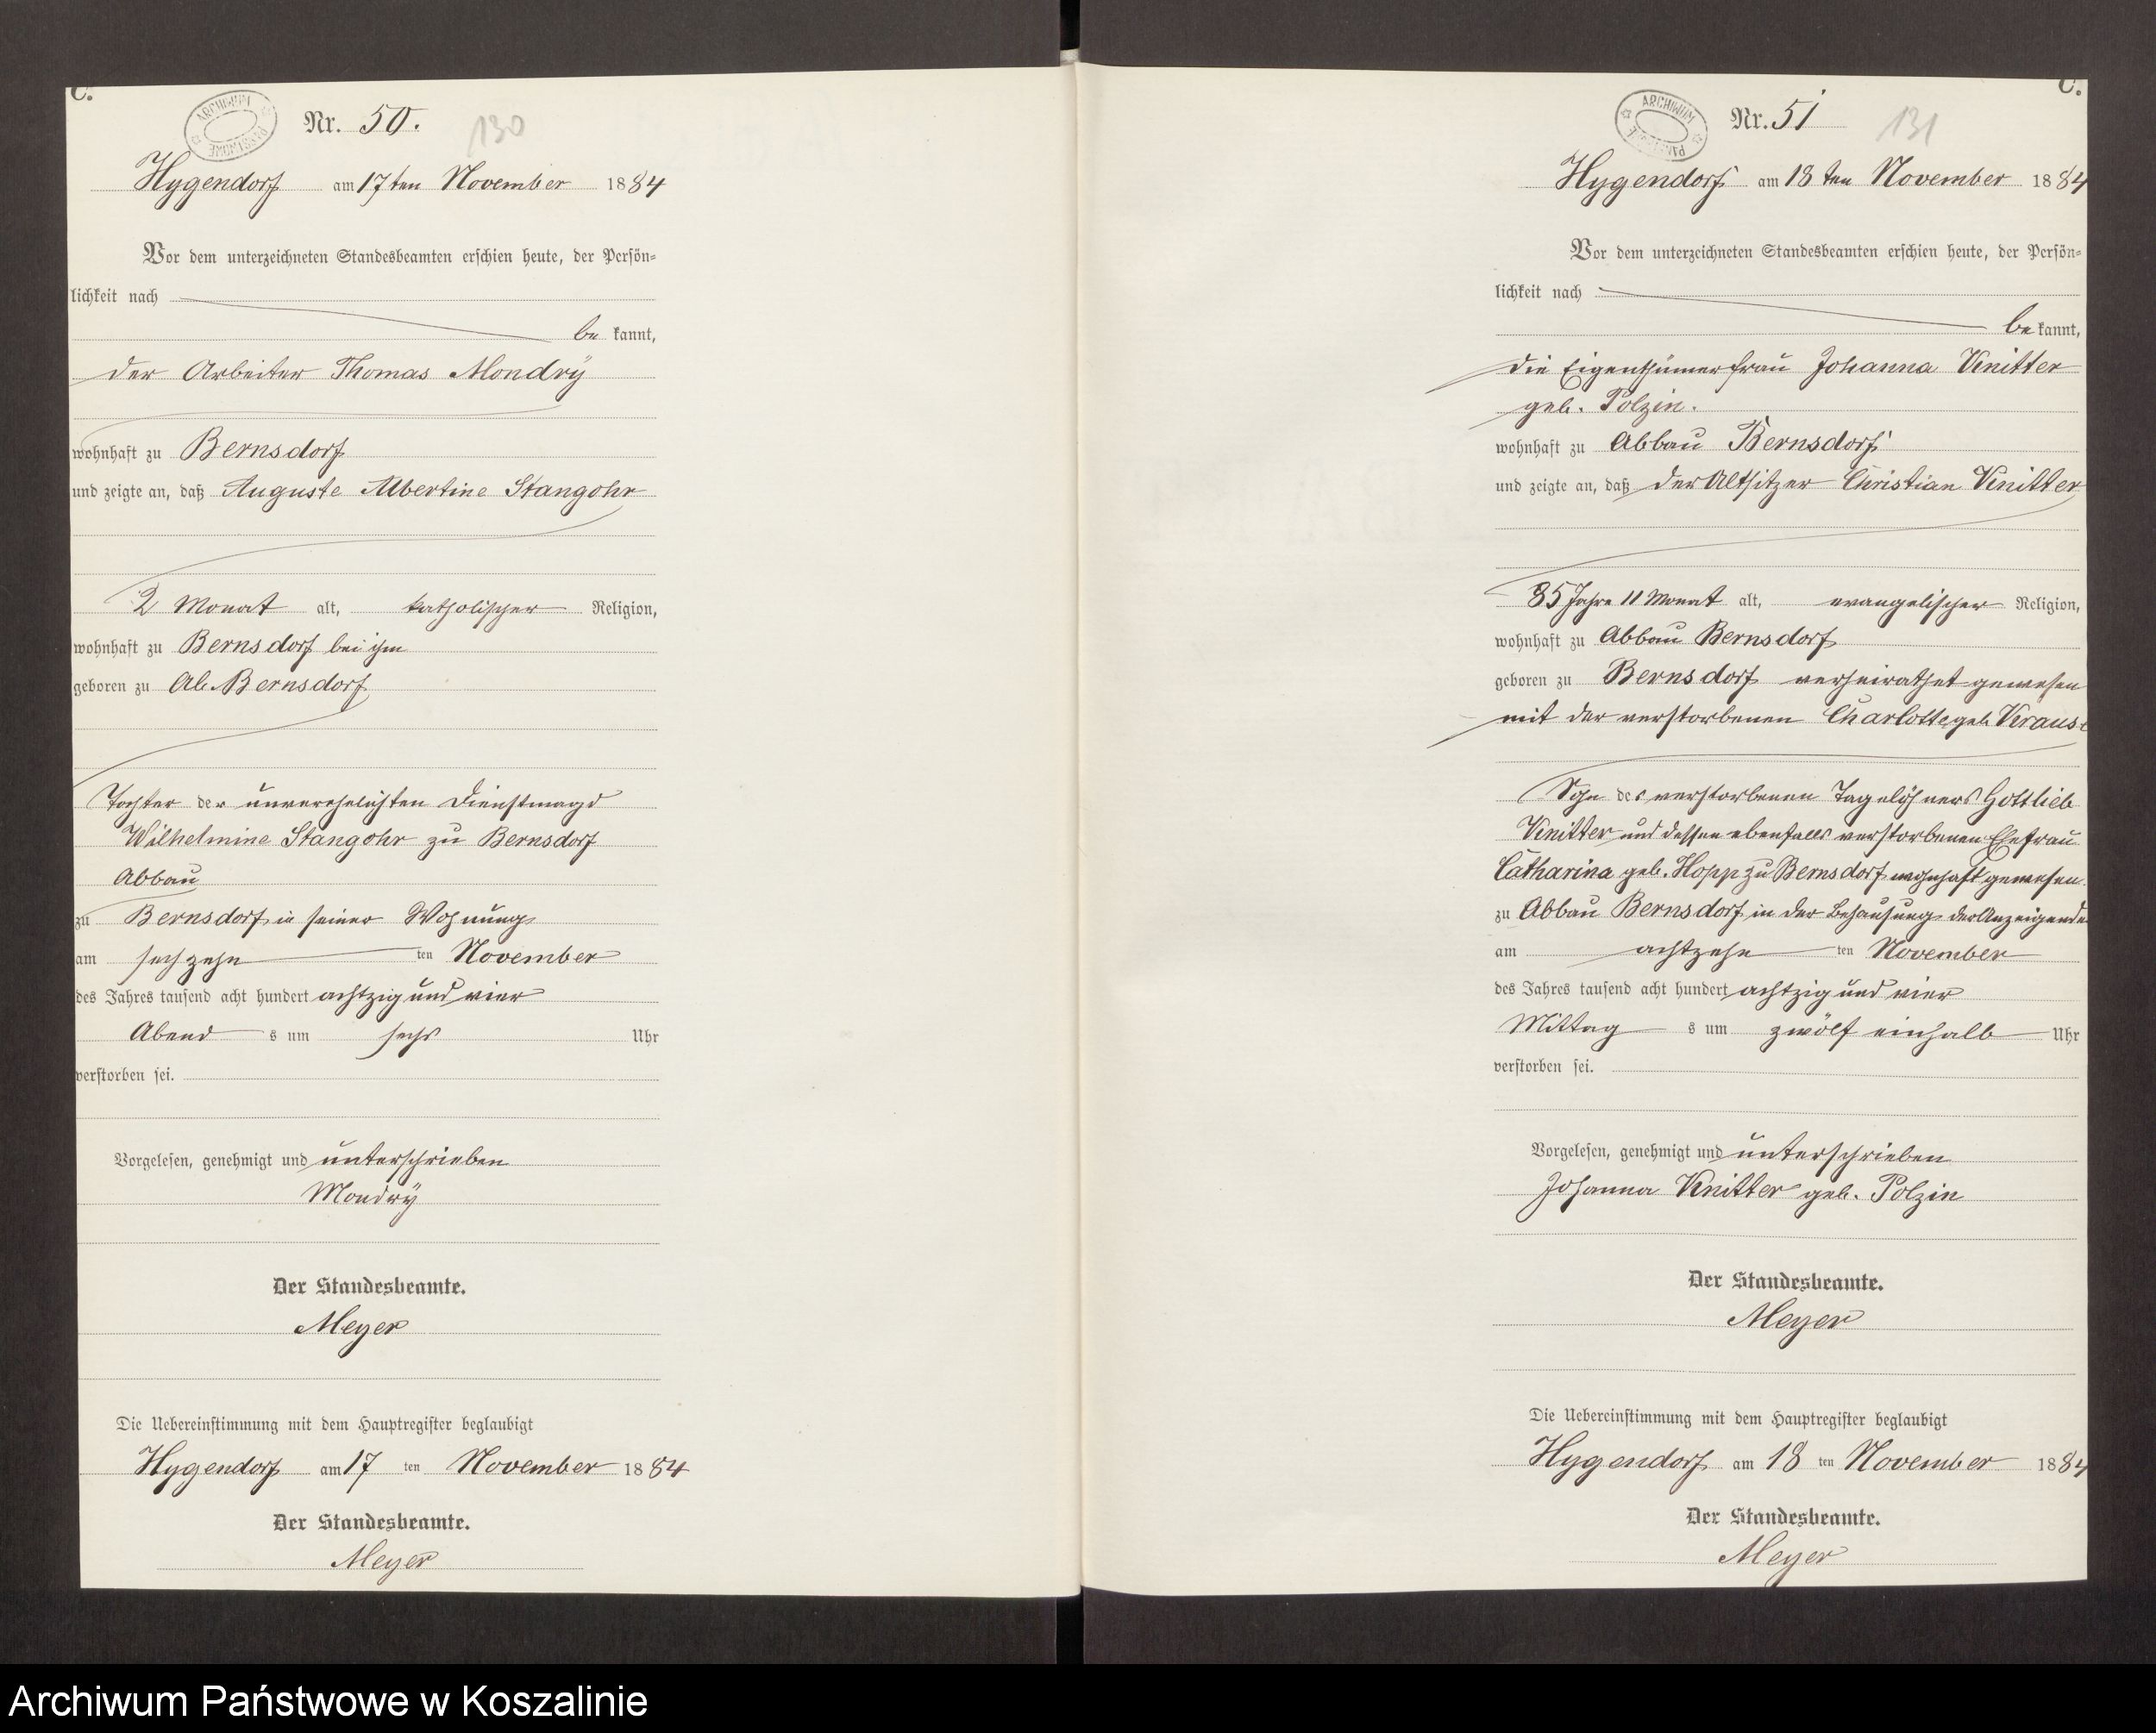 C.
ARCHIWUM PAŃSTWOWE
Nr. 50.
130
Hygendorf am 17ten November 1884
Vor dem unterzeichneten Standesbeamten erschien heute, der Persön-
lichkeit nach
be kannt,
der Arbeiter Thomas Mondry
wohnhaft zu Bernsdorf
und zeigte an, daß Auguste Albertine Stangohr
2 Monat alt, katholischer Religion,
wohnhaft zu Bernsdorf bei ihm
geboren zu Ab. Bernsdorf
Tochter der unverehelichten Dienstmagd
Wilhelmine Stangohr zu Bernsdorf
Abbau
zu Bernsdorf in seiner Wohnung
am sechzehn ten November
des Jahres tausend acht hundert achtzig und vier
Abend s um sechs Uhr
verstorben sei.
Vorgelesen, genehmigt und unterschrieben
Mondry
Der Standesbeamte.
Meyer
Die Uebereinstimmung mit dem Hauptregister beglaubigt
Hygendorf am 17 ten November 1884
Der Standesbeamte.
Meyer
C.
ARCHIWUM PAŃSTWOWE
Nr. 51
131
Hygendorf am 18ten November 1884
Vor dem unterzeichneten Standesbeamten erschien heute, der Persön-
lichkeit nach
be kannt,
die Eigenthümerfrau Johanna Knitter
geb. Polzin.
wohnhaft zu Abbau Bernsdorf
und zeigte an, daß der Altsitzer Christian Knitter
85 Jahre 11 Monat alt, evangelischer Religion,
wohnhaft zu Abbau Bernsdorf
geboren zu Bernsdorf verheirathet gewesen
mit der verstorbenen Charlotte geb. Kraus
Sohn des verstorbenen Tagelöhners Gottlieb
Knitter und dessen ebenfalls verstorbenen Ehefrau
Catharina geb. Hopp zu Bernsdorf wohnhaft gewesen
zu Abbau Bernsdorf in der Behausung der Anzeigende
am achtzehn ten November
des Jahres tausend acht hundert achtzig und vier
Mittag s um zwölf einhalb Uhr
verstorben sei.
Vorgelesen, genehmigt und unterschrieben
Johanna Knitter geb. Polzin
Der Standesbeamte.
Meyer
Die Uebereinstimmung mit dem Hauptregister beglaubigt
Hygendorf am 18 ten November 1884
Der Standesbeamte.
Meyer
Archiwum Państwowe w Koszalinie